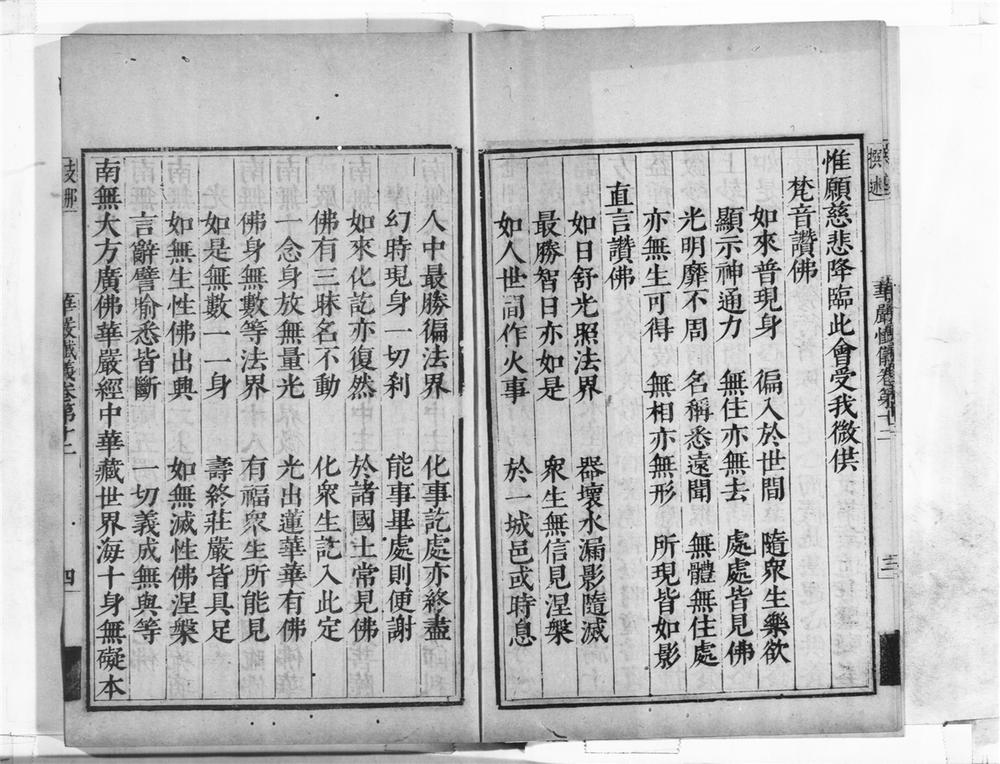 撰述
華嚴懺儀卷第十二
三
惟願慈悲降臨此會受我微供
梵音讚佛
如來普現身　徧入於世間　隨衆生樂欲
顯示神通力　無住亦無去　處處皆見佛
光明靡不周　名稱悉遠聞　無體無住處
亦無生可得　無相亦無形　所現皆如影
直言讚佛
如日舒光照法界　器壞水漏影隨滅
最勝智日亦如是　衆生無信見涅槃
如人世間作火事　於一城邑或時息
人中最勝徧法界　化事訖處亦終盡
幻時現身一切刹　能事畢處則便謝
如來化訖亦復然　於諸國土常見佛
佛有三昧名不動　化衆生訖入此定
一念身放無量光　光出蓮華華有佛
佛身無數等法界　有福衆生所能見
如是無數一一身　壽終莊嚴皆具足
如無生性佛出興　如無滅性佛涅槃
言辭譬喻悉皆斷　一切義成無與等
南無大方廣佛華嚴經中華藏世界海十身無礙本
華嚴懺儀卷第十二
四